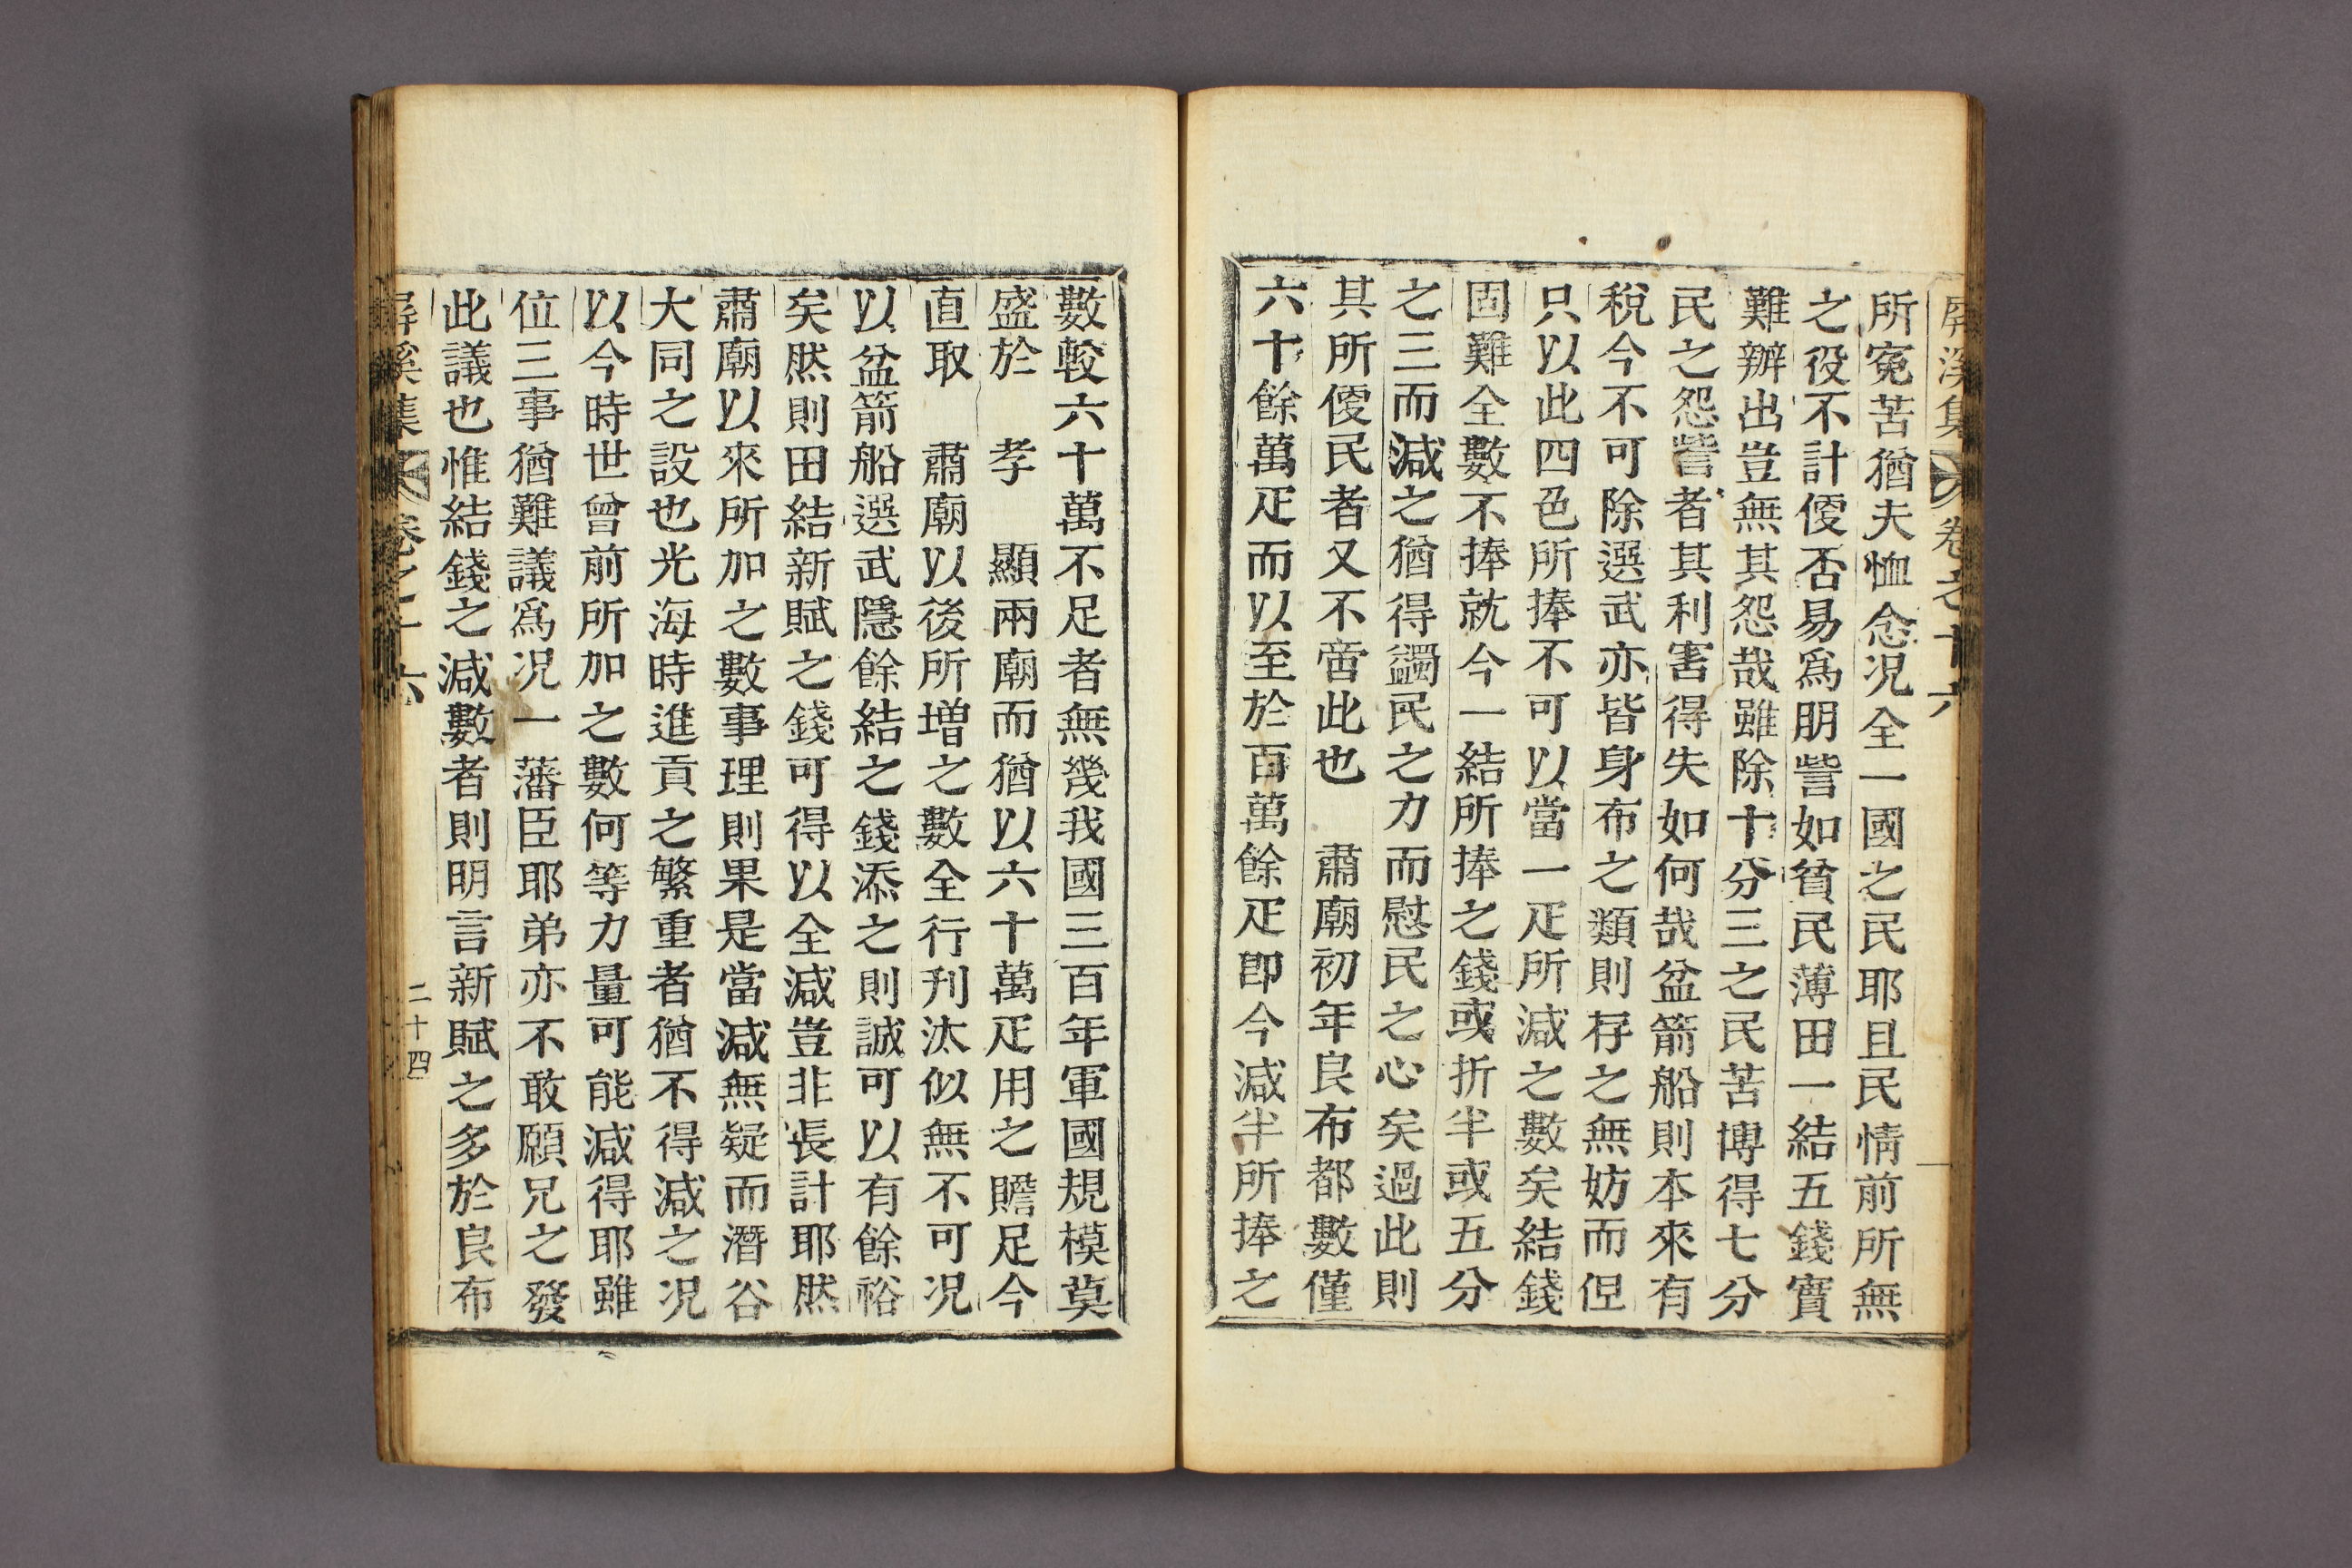 屛溪集 卷之十六
所寃苦猶夫恤念况全一國之民耶且民情前所無
之役不計便否易爲朋訾如貧民薄田一結五錢實
難辦出豈無其怨哉雖除十分三之民苦博得七分
民之怨訾者其利害得失如何哉盆箭船則本來有
稅今不可除選武亦皆身布之類則存之無妨而但
只以此四色所捧不可以當一疋所減之數矣結錢
固難全數不捧就今一結所捧之錢或折半或五分
之三而減之猶得蠲民之力而慰民之心矣過此則
其所便民者又不啻此也　肅廟初年良布都數僅
六十餘萬疋而以至於百萬餘疋卽今減半所捧之
數較六十萬不足者無幾我國三百年軍國規模莫
盛於　孝　顯兩廟而猶以六十萬疋用之贍足今
直取　肅廟以後所增之數全行刋汰似無不可况
以盆箭船選武隱餘結之錢添之則誠可以有餘裕
矣然則田結新賦之錢可得以全減豈非長計耶然
肅廟以來所加之數事理則果是當減無疑而潛谷
大同之設也光海時進貢之繁重者猶不得減之况
以今時世曾前所加之數何等力量可能減得耶雖
位三事猶難議爲况一藩臣耶弟亦不敢願兄之發
此議也惟結錢之減數者則明言新賦之多於良布
屛溪集 卷之十六
二十四